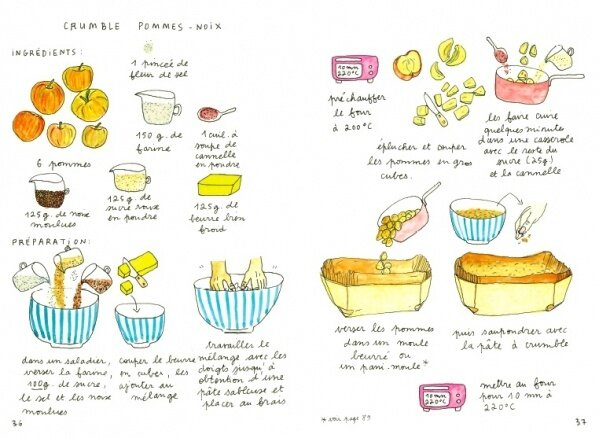 CRUMBLE POMMES-NOIX
INGRÉDIENTS:
1 pincée de
fleur de sel
150 g. de
farine
1 cuil. à
soupe de
cannelle
en poudre
6 pommes
125 g. de noix
moulues
125 g. de
sucre roux
en poudre
125 g. de
beurre bien
froid
PRÉPARATION:
dans un saladier,
verser la farine,
100g. de sucre,
le sel et les noix
moulues
couper le beurre
en cuber, les
ajouter au
mélange
travailler le
mélange avec les
doigts jusqu'à
obtention d'une
pâte sableuse et
placer au frais
36
10mn
220°C
préchauffer
le four
à 200°C
éplucher et couper
les pommes en gros
cubes.
les faire cuire
quelques minutes
dans une casserole
avec le reste du
sucre (25g)
et la cannelle
verser les pommes
dans un moule
beurré ou
un pani-moule*
puis saupoudrer avec
la pâte à crumble
10mn
220°C
mettre au four
pour 10 mn à
220°C
* voir page 89
37